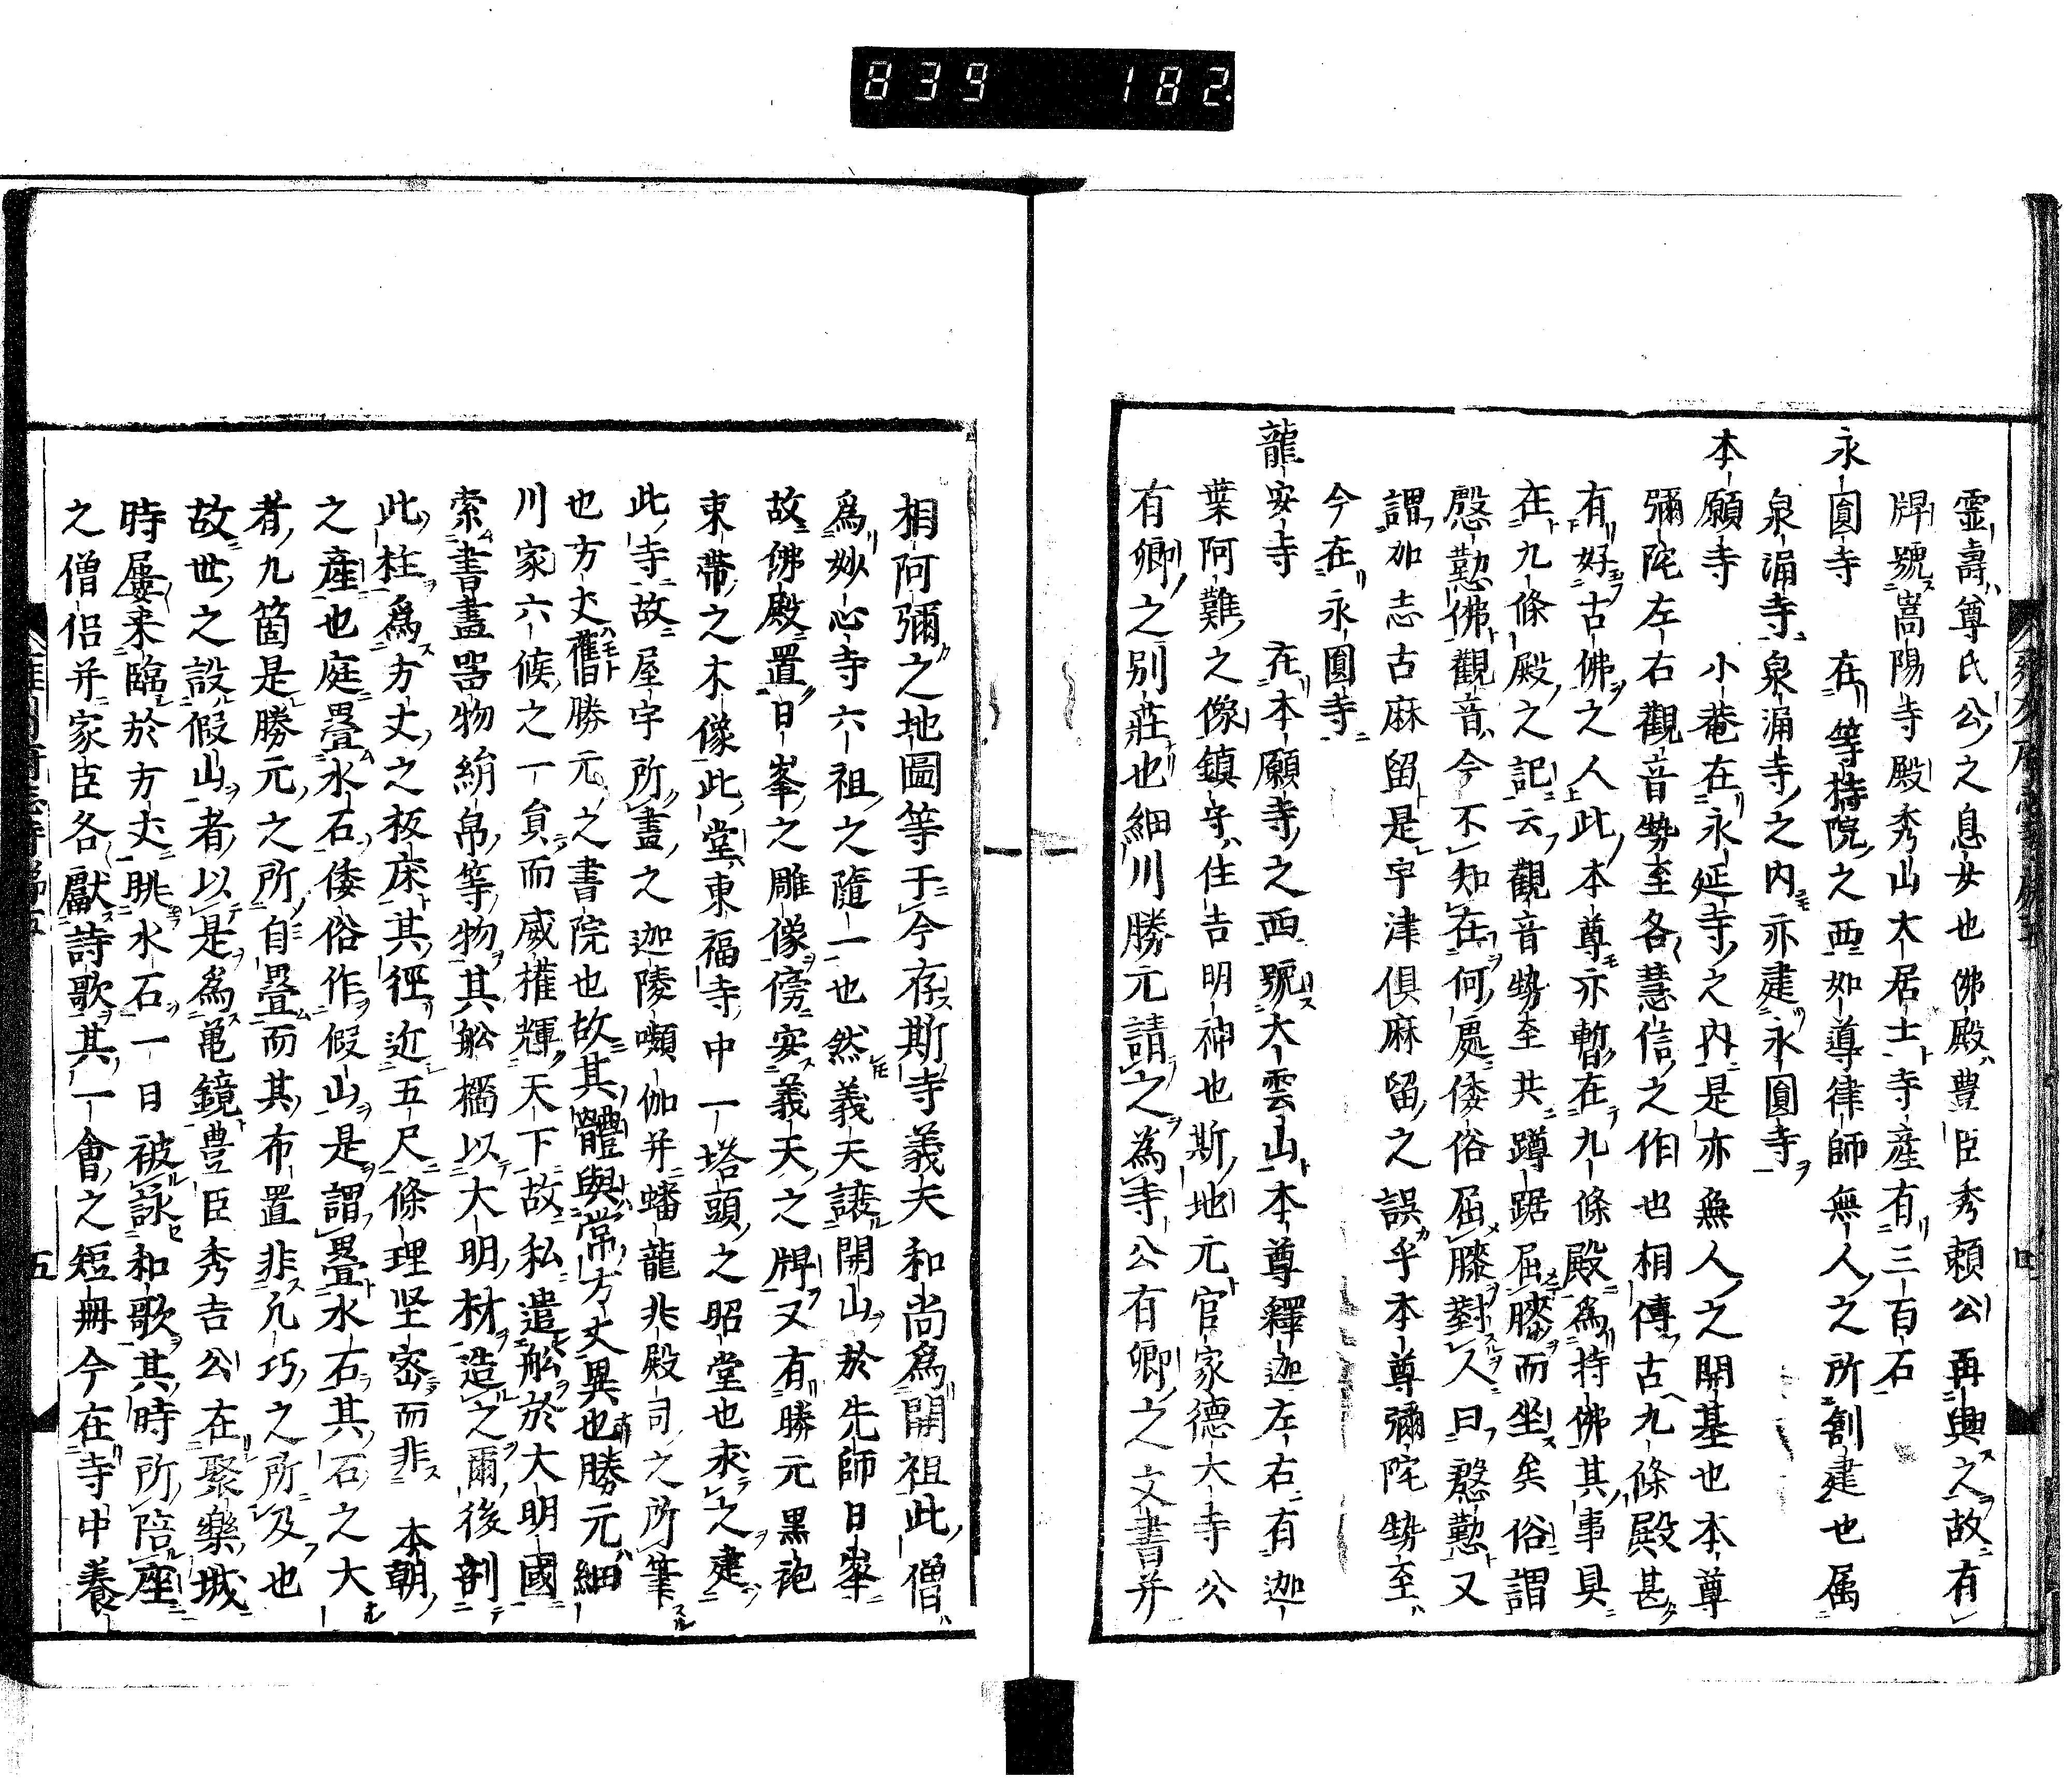 839 182
霊壽尊氏公之息女也佛殿豊臣秀頼公再興之故有
牌號嵩陽寺殿秀山大居士寺産有三百石
永圓寺 在等持院之西如導律師無人之所創建也属
泉涌寺泉涌寺之内亦建永圓寺
本願寺 小菴在永延寺之内是亦無人之開基也本尊
彌陀左右觀音勢至各慧信之作也相傳古九條殿甚
有好古佛之人此本尊亦暫在九條殿為持佛其事具
在九條殿之記云觀音勢至共蹲踞屈膝而坐矣俗謂
慇懃佛觀音今不知在何處倭俗屈膝對人曰慇懃又
謂加志古麻留是宇津俱麻留之誤乎本尊彌陀勢至
今在永圓寺
龍安寺 在本願寺之西號大雲山本尊釋迦左右有迦
葉阿難之像鎮守住吉明神也斯地元官家德大寺公
有卿之別莊也細川勝元請之為寺公有卿之文書并
相阿彌之地圖等于今存斯寺義天和尚為開祖此僧
為妙心寺六祖之隨一也然義天讓開山於先師日峯
故佛殿置日峯之雕像傍安義天之牌又有勝元黒袍
束帶之木像此堂東福寺中一塔頭之昭堂也求之建
此寺故屋宇所畫之迦陵嚬伽并蟠龍兆殿司之所筆
也方丈舊勝元之書院也故其體與常方丈異也勝元細
川家六候之一員而威權輝天下故私遣舩於大明國
索書畫器物絹帛等物其舩檣以大明材造之爾後割
此柱為方丈之板床其徑近五尺條理堅密而非 本朝
之産也庭疊水石倭俗作假山是謂疊水石其石之大
者九箇是勝元之所自疊而其布置非凡巧之所及也
故世之設假山者以是為亀鏡豊臣秀吉公在聚樂城
時屢来臨於方丈眺水石一日被詠和歌其時所陪座
之僧侶并家臣各獻詩歌其一會之短冊今在寺中養
五